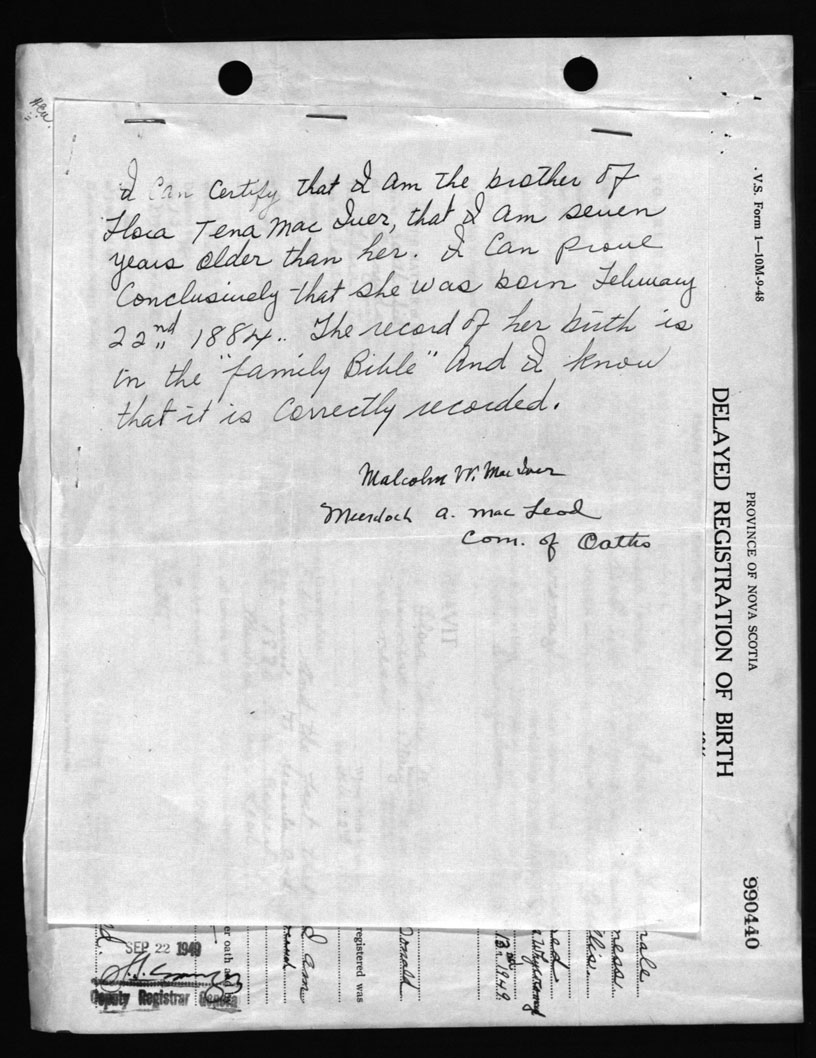 I Can Certify that I Am the brother of
Flora Tena Mac Iver, that I Am seven
years older than her. I Can prove
Conclusively that she was born February
22nd 1884. The record of her birth is
in the "family Bible" And I know
that it is Correctly recorded.
Malcolm W. Mac Iver
Murdoch A. Mac Leod
Com. of Oaths
V.S. Form 1—10M-9-48
PROVINCE OF NOVA SCOTIA
DELAYED REGISTRATION OF BIRTH
990440
registered was
I am
er oath
SEP 22 1949
Deputy Registrar General